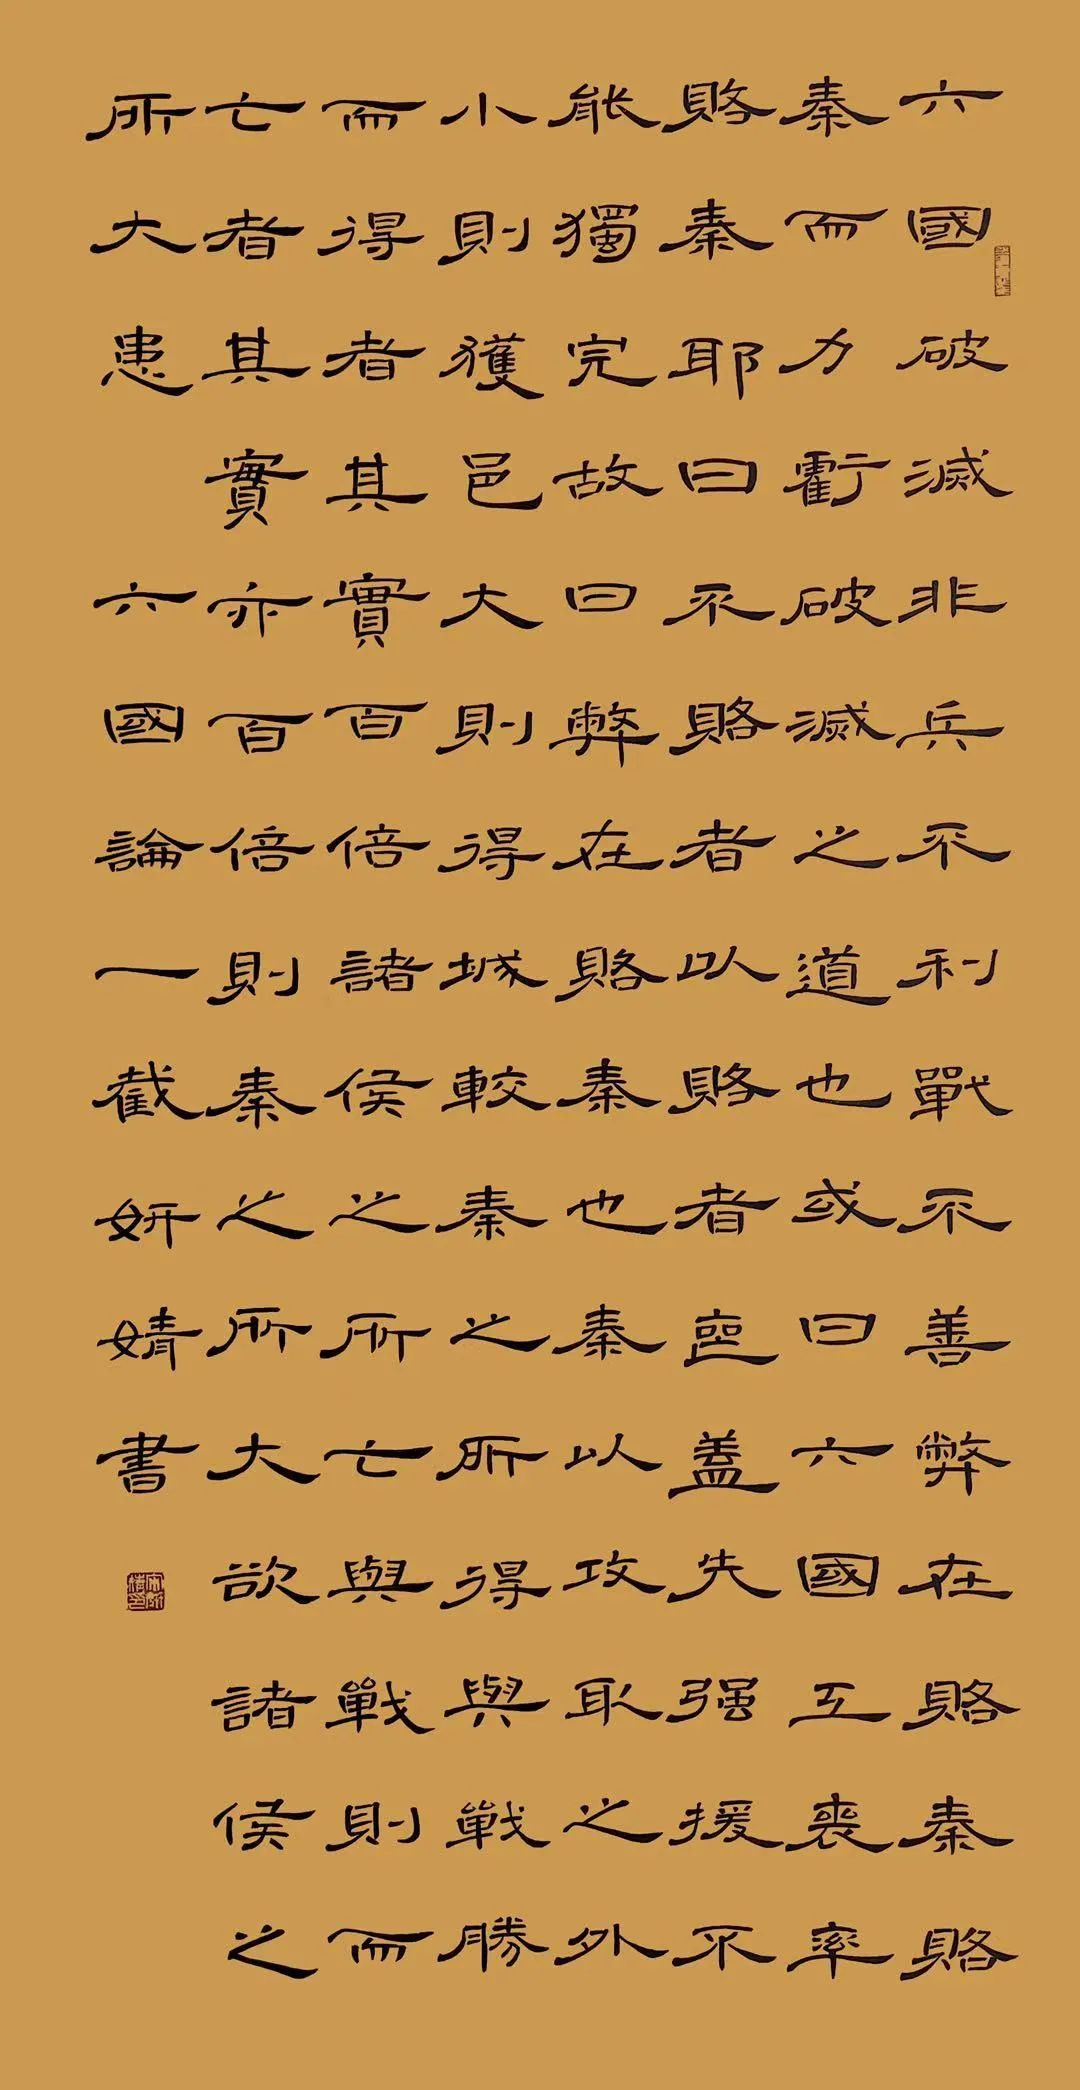 六國破滅非兵不利戰不善弊在賂秦賂
秦而力虧破滅之道也或曰六國互喪率
賂秦耶曰不賂者以賂者喪盖失强援不
能獨完故曰弊在賂秦也秦以攻取之外
小則獲邑大則得城較秦之所得與戰勝
而得者其實百倍諸侯之所亡與戰則而
亡者其實亦百倍則秦之所大欲諸侯之
所大患 六國論一截妍婧書